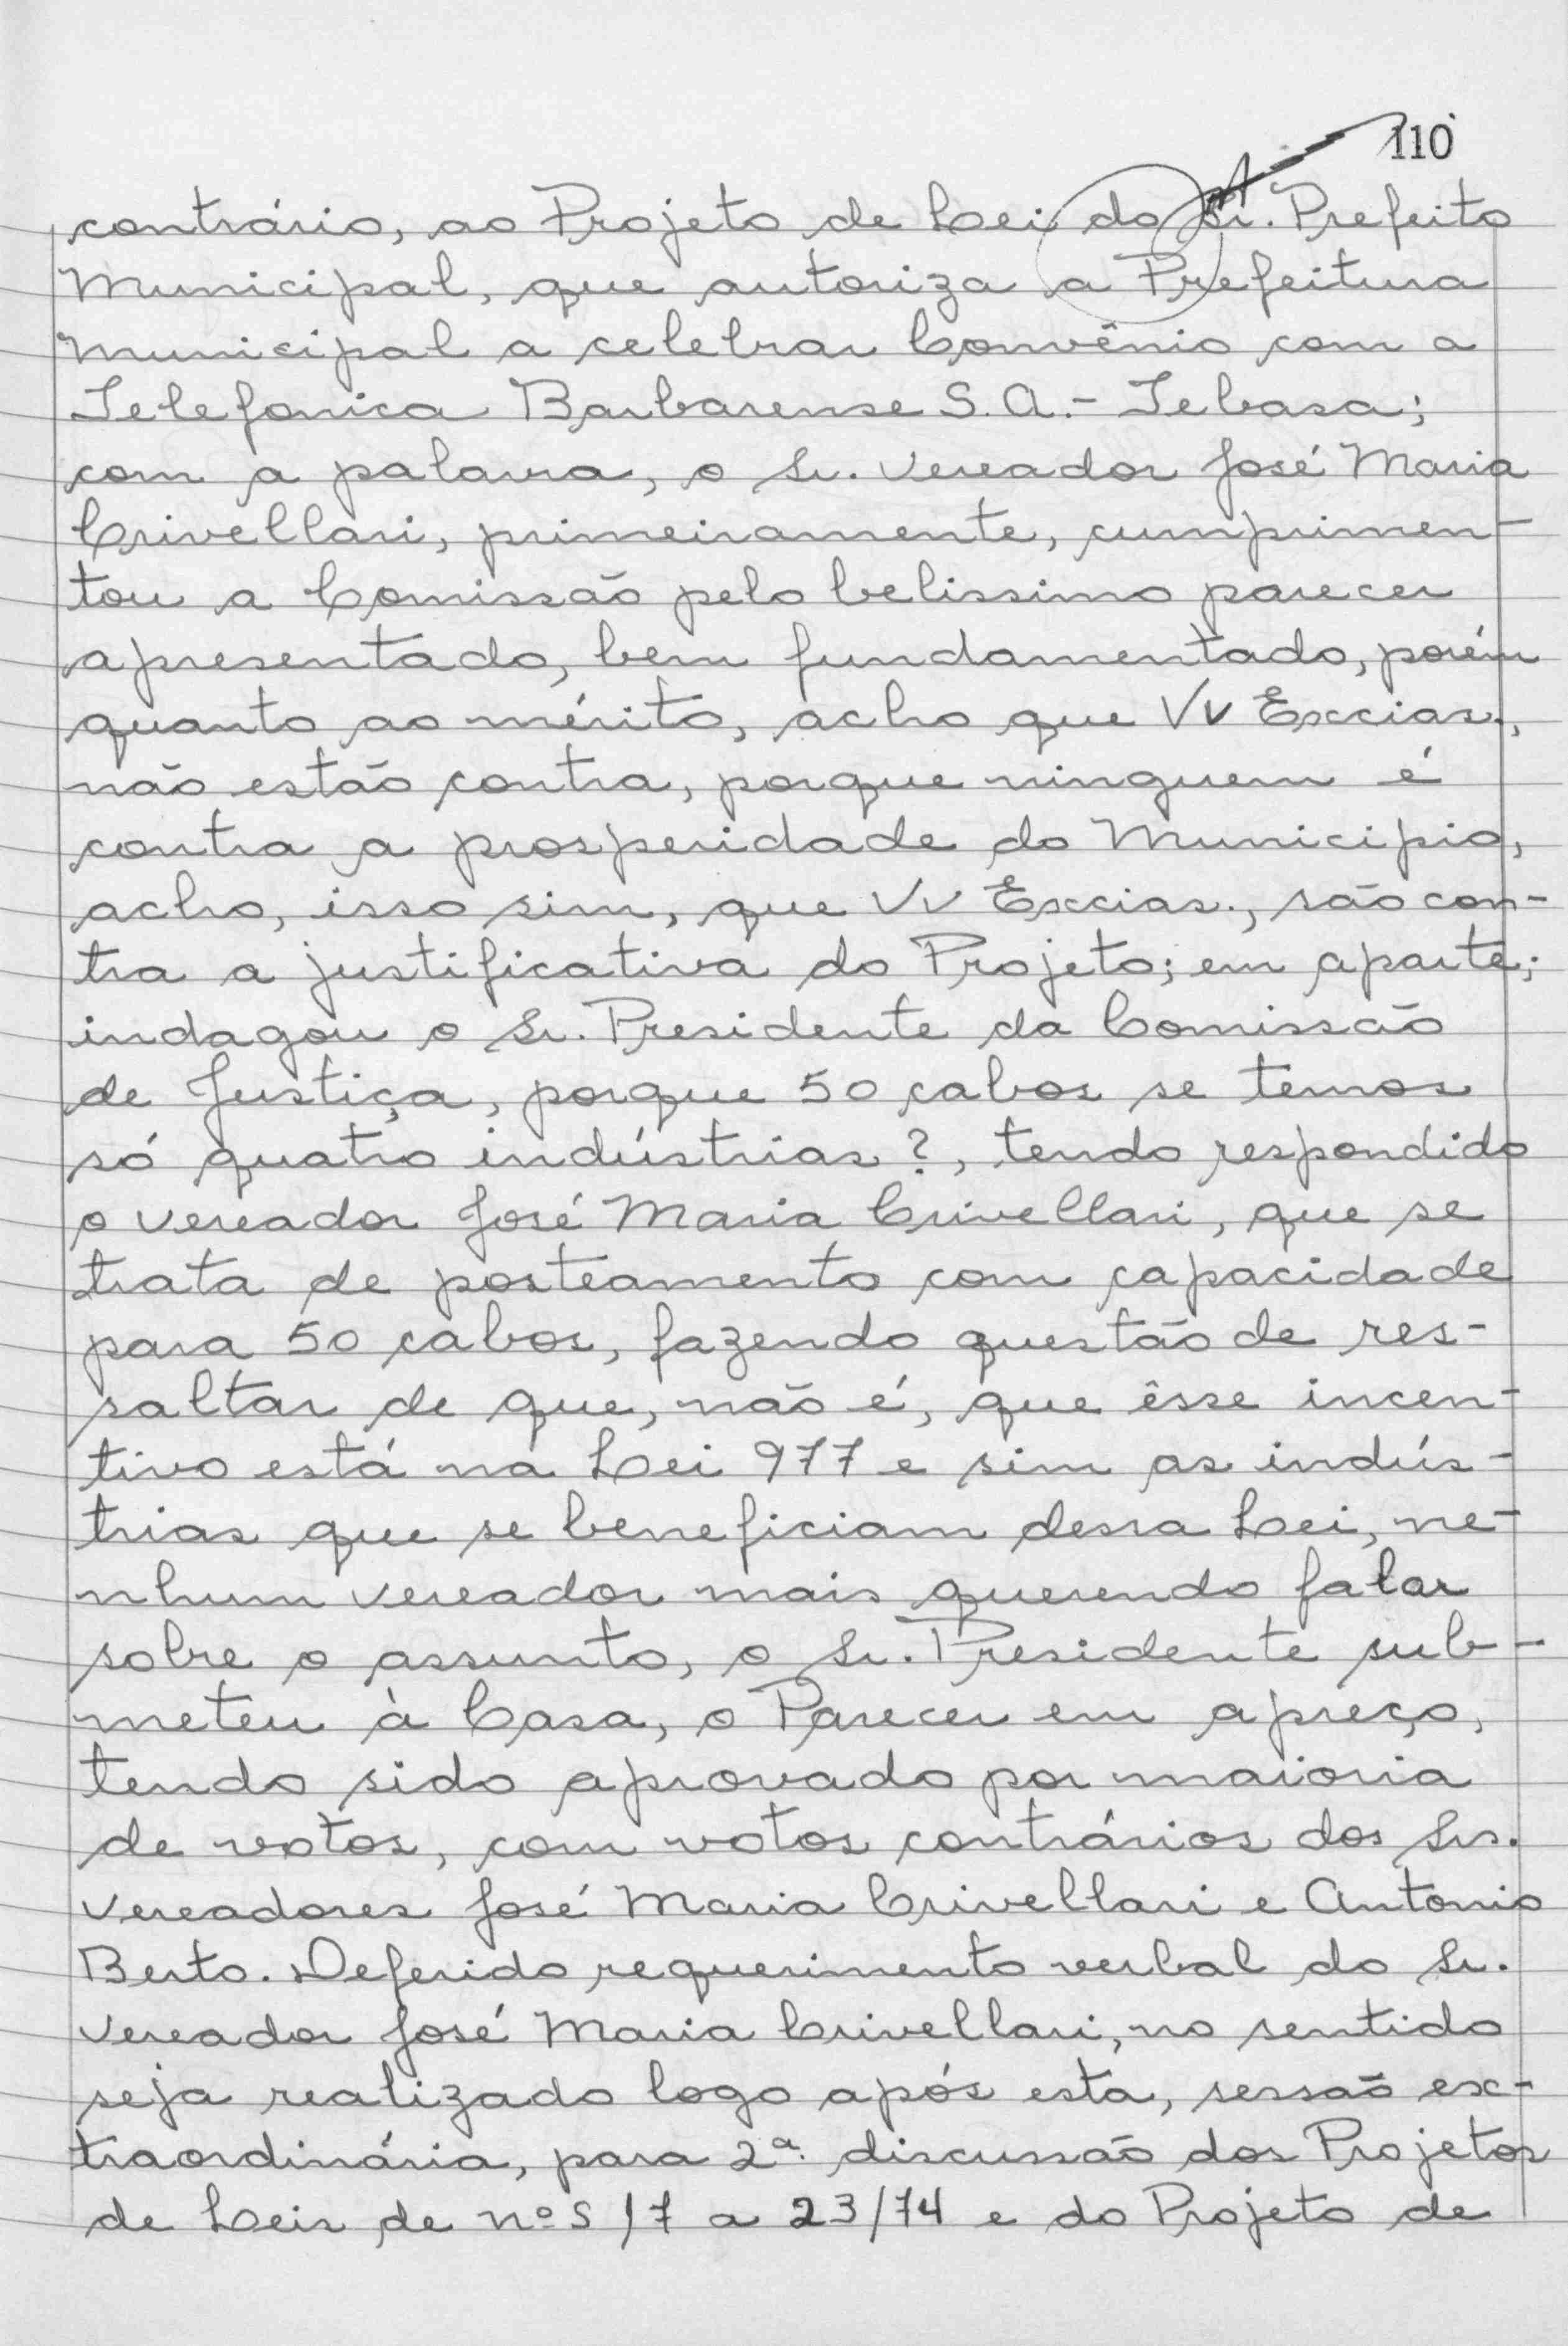 110
contrário, ao Projeto de Lei do Sr. Prefeito
Municipal, que autoriza a Prefeitura
Municipal a celebrar Convênio com a
Telefonica Barbarense S.A.- Tebasa;
com a palavra, o Sr. Vereador José Maria
Crivellari, primeiramente, cumprimen-
tou a Comissão pelo belissimo parecer
apresentado, bem fundamentado, porém
quanto ao mérito, acho que VV Excias.,
não estão contra, porque ninguem é
contra a prosperidade do Municipio,
acho, isso sim, que VV Excias., são con-
tra a justificativa do Projeto; em aparte;
indagou o Sr. Presidente da Comissão
de Justiça, porque 50 cabos se temos
só quatro indústrias?, tendo respondido
o vereador José Maria Crivellari, que se
trata de posteamento com capacidade
para 50 cabos, fazendo questão de res-
saltar de que, não é, que êsse incen-
tivo está na Lei 977 e sim as indús-
trias que se beneficiam dessa Lei, ne-
nhum vereador mais querendo falar
sobre o assunto, o Sr. Presidente sub-
meteu à Casa, o Parecer em apreço,
tendo sido aprovado por maioria
de votos, com votos contrários dos Srs.
Vereadores José Maria Crivellari e Antonio
Berto. Deferido requerimento verbal do Sr.
Vereador José Maria Crivellari, no sentido
seja realizado logo após esta, sessão ex-
traordinária, para 2ª discussão dos Projetos
de Leis de nºs 17 a 23/74 e do Projeto de